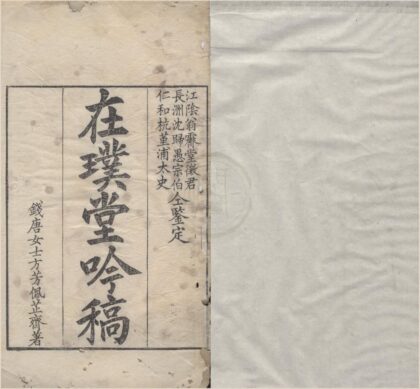 江陰翁霽堂徵君
長洲沈歸愚宗伯
仁和杭堇浦太史
仝鑒定
在璞堂吟稿
錢唐女士方芳佩芷齋著